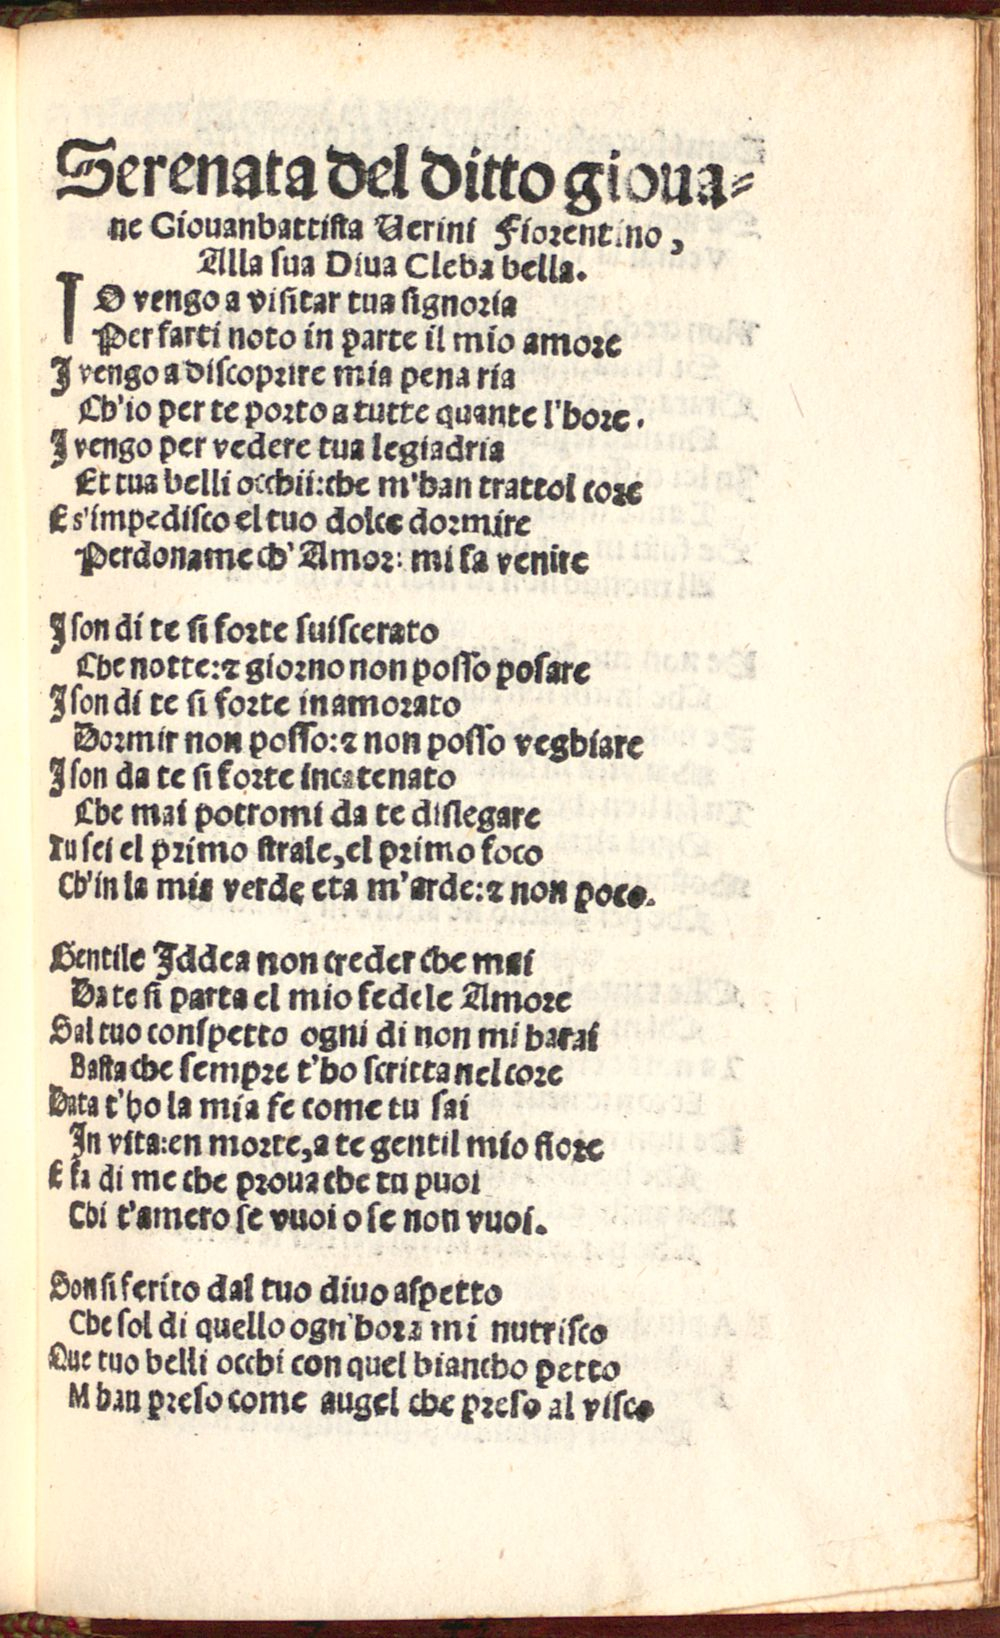 Serenata del ditto gioua⸗
ne Giouanbattista Uerini Fiorentino,
Alla sua Diua Cleba bella.
IO vengo a visitar tua signoria
Per farti noto in parte il mio amore
I vengo a discoprire mia pena ria
Ch'io per te porto a tutte quante l'hore.
I vengo per vedere tua legiadria
Et tua belli occhii:che m'han trattol core
E s'impedisco el tuo dolce dormire
Perdoname ch'Amor: mi fa venire
I son di te si forte suiscerato
Che notte:⁊ giorno non posso posare
I son di te si forte inamorato
Dormir non posso:⁊ non posso veghiare
I son da te si forte incatenato
Che mai potromi da te dislegare
Tu sei el primo strale,el primo foco
Ch'in la mia verde eta m'arde:⁊ non poco.
Gentile Iddea non creder che mai
Da te si parta el mio fedele Amore
Sal tuo conspetto ogni di non mi harai
Basta che sempre t'ho scritta nel core
Data t'ho la mia fe come tu sai
In vita:en morte,a te gentil mio fiore
E fa di me che proua che tu puoi
Chi t'amero se vuoi o se non vuoi.
Son si ferito dal tuo diuo aspetto
Che sol di quello ogn'hora mi nutrisco
Que tuo belli occhi con quel biancho petto
M han preso come augel che preso al visco